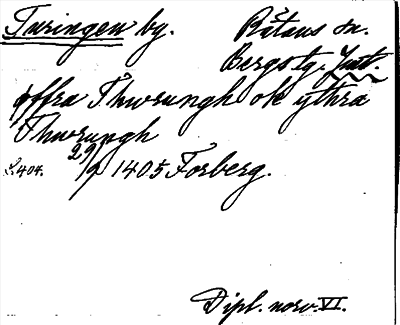 Turingen by. Råtans sn.
Bergs tg. Jmt.
øffra Thwrungh ok ythra
Thwrungh
S. 404. 29/9 1405 Forberg.
Dipl. norv. VI.